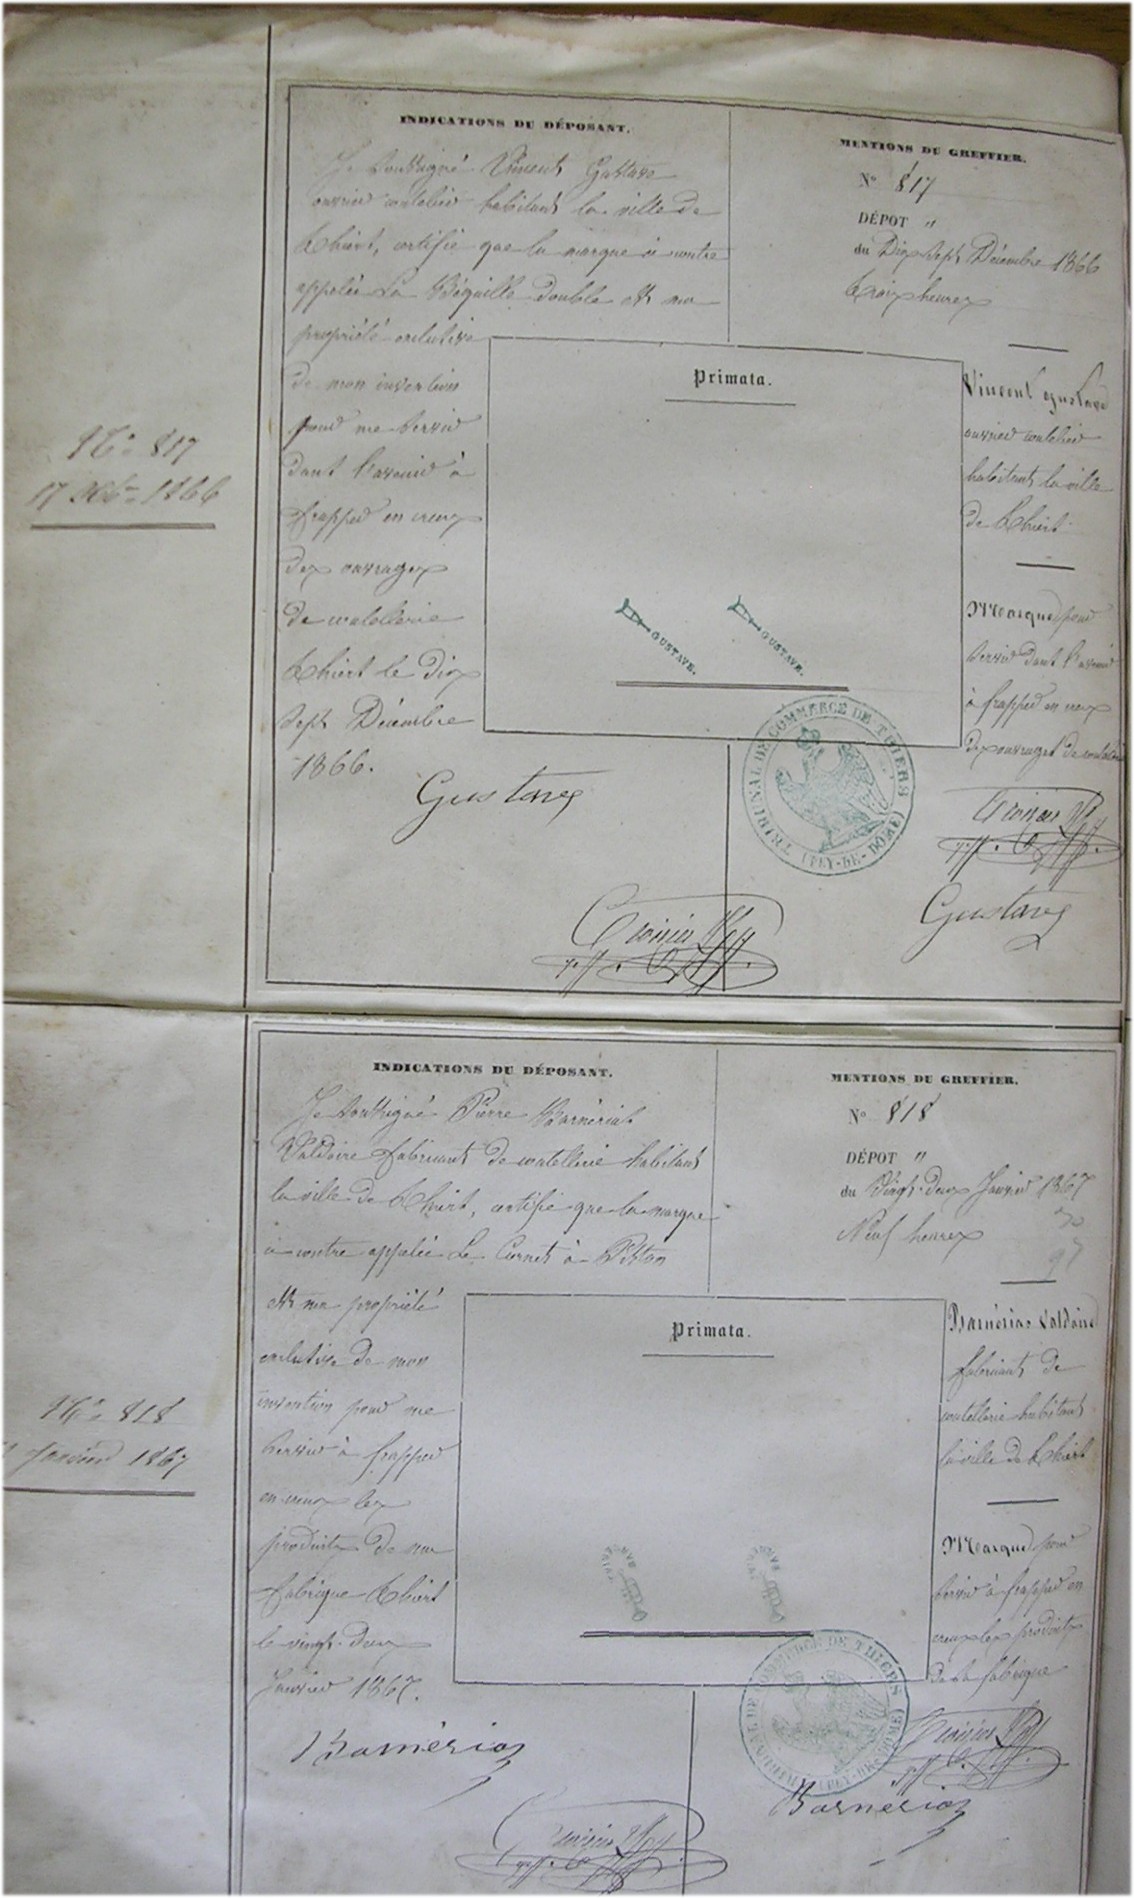 N° 817
17 Xbre 1866
INDICATIONS DU DÉPOSANT.
Je soussigné Vincent Gustave
ouvrier coutelier habitant la ville de
Thiers, certifie que la marque ci contre
appelée La Béquille double est ma
propriété exclusive
de mon invention
pour me servir
dans l'avenir à
frapper en creux
des ouvrages
de coutellerie
Thiers le Dix
Sept Décembre
1866.
Gustave
MENTIONS DU GREFFIER.
N° 817
DÉPOT "
du Dix Sept Décembre 1866
Trois heures
Primata.
GUSTAVE.
GUSTAVE.
Vincent Gustave
ouvrier coutelier
habitant la ville
de Thiers
Marque pour
servir dans l'avenir
à frapper en creux
des ouvrages de coutellerie
TRIBUNAL DE COMMERCE DE THIERS
(PUY-DE-DOME)
Gustave
N° 818
Janvier 1867
INDICATIONS DU DÉPOSANT.
Je soussigné Pierre Barnérias
Valdaire fabricant de coutellerie habitant
la ville de Thiers, certifie que la marque
ci contre appelée Le Cornet à Piston
est ma propriété
exclusive de mon
invention pour me
servir à frapper
en creux les
produits de ma
fabrique Thiers
le vingt-deux
Janvier 1867.
Barnérias
MENTIONS DU GREFFIER.
N° 818
DÉPOT "
du Vingt-deux Janvier 1867
Neuf heures
Primata.
Barnérias Valdaire
fabricant de
coutellerie habitant
la ville de Thiers
Marque pour
servir à frapper en
creux les produits
de sa fabrique
TRIBUNAL DE COMMERCE DE THIERS
(PUY-DE-DOME)
Barnérias